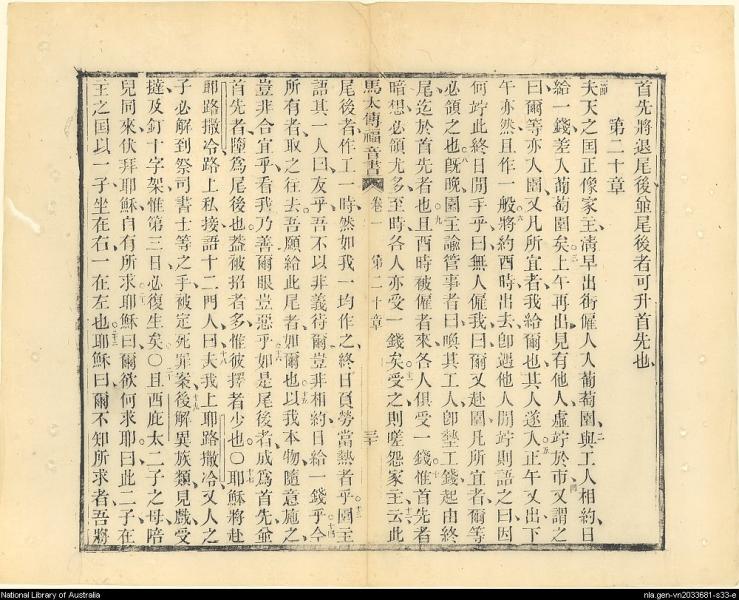 首先將退尾後並尾後者可升首先也
第二十章
夫天之国正像家主清早出街僱人入葡萄園與工人相約日
給一錢差入葡萄園矣上午再出見有他人虛竚於市又謂之
曰爾等亦入園又凡所宜者我給爾也其人遂入正午又出下
午亦然且作一般將約酉時出去卽遇他人閒竚則語之曰因
何竚此終日閒手乎曰無人僱我曰爾又赴園凡所宜者爾等
必領之也旣晚園主諭管事者曰喚其工人卽墊工錢起由終
尾迄於首先者也且酉時被僱者來各人俱受一錢惟首先者
暗想必領尤多至時各人亦受一錢矣受之則嗟怨家主云此
馬太傳福音書 卷一 第二十章 三十
尾後者作工一時然如我一均作之終日負勞當熱者乎園主
語其一人曰友乎吾不以非義待爾豈非相約日給一錢乎今
所有者取之往去吾願給此尾者如爾也以我本物隨意施之
豈非合宜乎看我乃善爾眼豈惡乎如是尾後者成爲首先並
首先者墮爲尾後也蓋被招者多惟彼擇者少也〇耶穌將赴
耶路撒冷路上私接語十二門人曰夫我上耶路撒冷又人之
子必解到祭司書士等之手被定死罪案後解異族類見戲受
撻及釘十字架惟第三日必復生矣〇且西庇太二子之母陪
兒同來伏拜耶穌自有所求耶穌曰爾欲何求耶曰此二子在
王之国以一子坐在右一在左也耶穌曰爾不知所求者吾將
National Library of Australia
nla.gen-vn2033681-s33-e